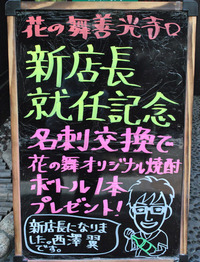 花の舞善光寺口
新店長
就任記念
名刺交換で
花の舞オリジナル焼酎
ボトル1本
プレゼント!
新店長になりま
した。西澤翼
です。